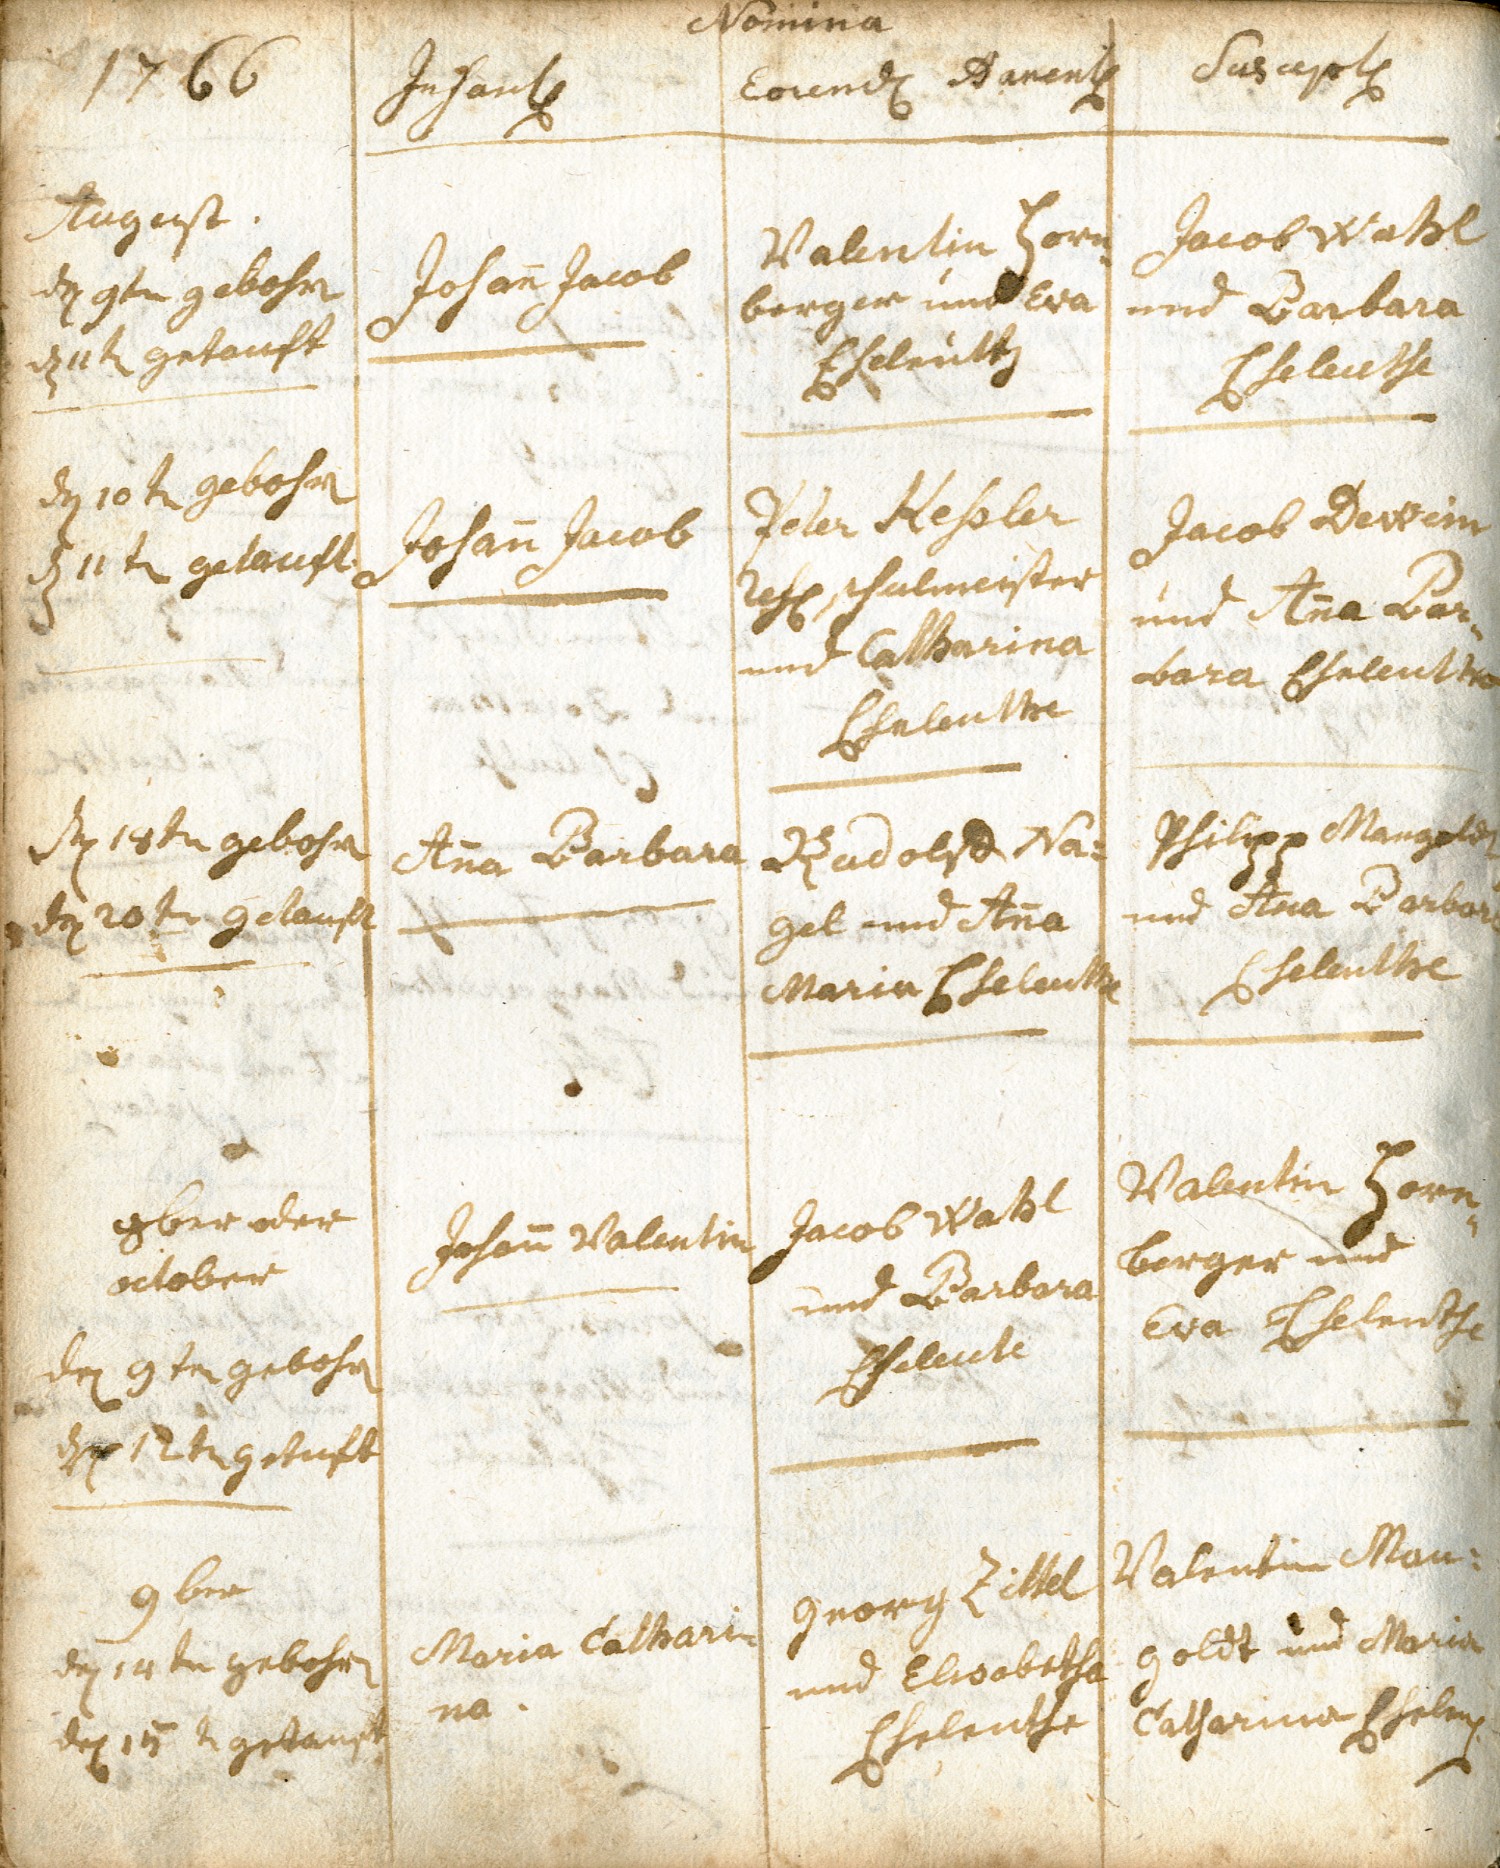 Nomina
1766
Infant
Eorend Parent
Suscept
August.
den 9ten gebohren
den 11t getauft
Johan̄ Jacob
Valentin Horn-
berger und Eva
Eheleuth
Jacob Wahl
und Barbara
Eheleuthe
den 10tn gebohren
den 11tn getauft.
Johan̄ Jacob
Peter Kessler
schulmeister
und Catharina
Eheleuthe
Jacob
und An̄a Bar-
bara Eheleuthe
den 18tn gebohren
den 20tn getauft
An̄a Barbara
Rudolph Na=
gel und An̄a
Maria Eheleuthe
Philipp Mangoldt
und An̄a Barbara
Eheleuthe
8ber oder
october
den 9tn gebohren
den 12tn getauft
Johan̄ Valentin
Jacob Wahl
und Barbara
Eheleute
Valentin Horn-
berger und
Eva Eheleuthe
9ber
den 14tn gebohren
den 15t getauft
Maria Cathari-
na.
Georg Zittel
und Elisabetha
Eheleuthe
Valentin Man=
goldt und Maria
Catharina Eheleu